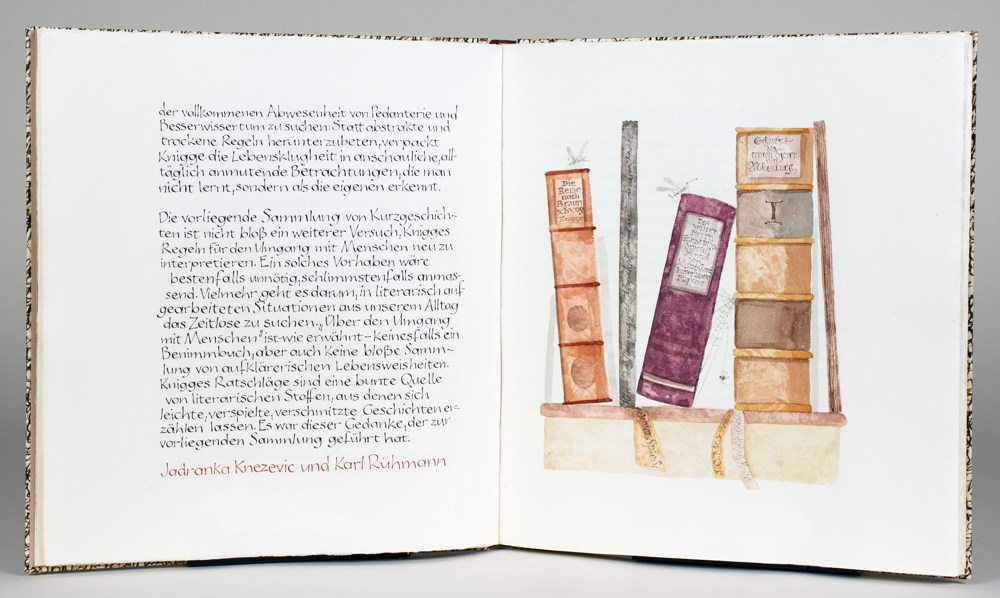 der vollkommenen Abwesenheit von Pedanterie und
Besserwissertum zu suchen: Statt abstrakte und
trockene Regeln herunterzubeten, verpackt
Knigge die Lebensklugheit in anschauliche, all-
täglich anmutende Betrachtungen, die man
nicht lernt, sondern als die eigenen erkennt.
Die vorliegende Sammlung von Kurzgeschich-
ten ist nicht bloß ein weiterer Versuch, Knigges
Regeln für den Umgang mit Menschen neu zu
interpretieren. Ein solches Vorhaben wäre
bestenfalls unnötig, schlimmstenfalls anmas-
send. Vielmehr geht es darum, in literarisch auf-
gearbeiteten Situationen aus unserem Alltag
das Zeitlose zu suchen. „Über den Umgang
mit Menschen" ist - wie erwähnt - keinesfalls ein
Benimmbuch, aber auch keine bloße Samm-
lung von aufklärerischen Lebensweisheiten.
Knigges Ratschläge sind eine bunte Quelle
von literarischen Stoffen, aus denen sich
leichte, verspielte, verschmitzte Geschichten er-
zählen lassen. Es war dieser Gedanke, der zur
vorliegenden Sammlung geführt hat.
Jadranka Knezevic und Karl Rühmann
Die
Reise
nach
Braun
schweig
Knigge
I